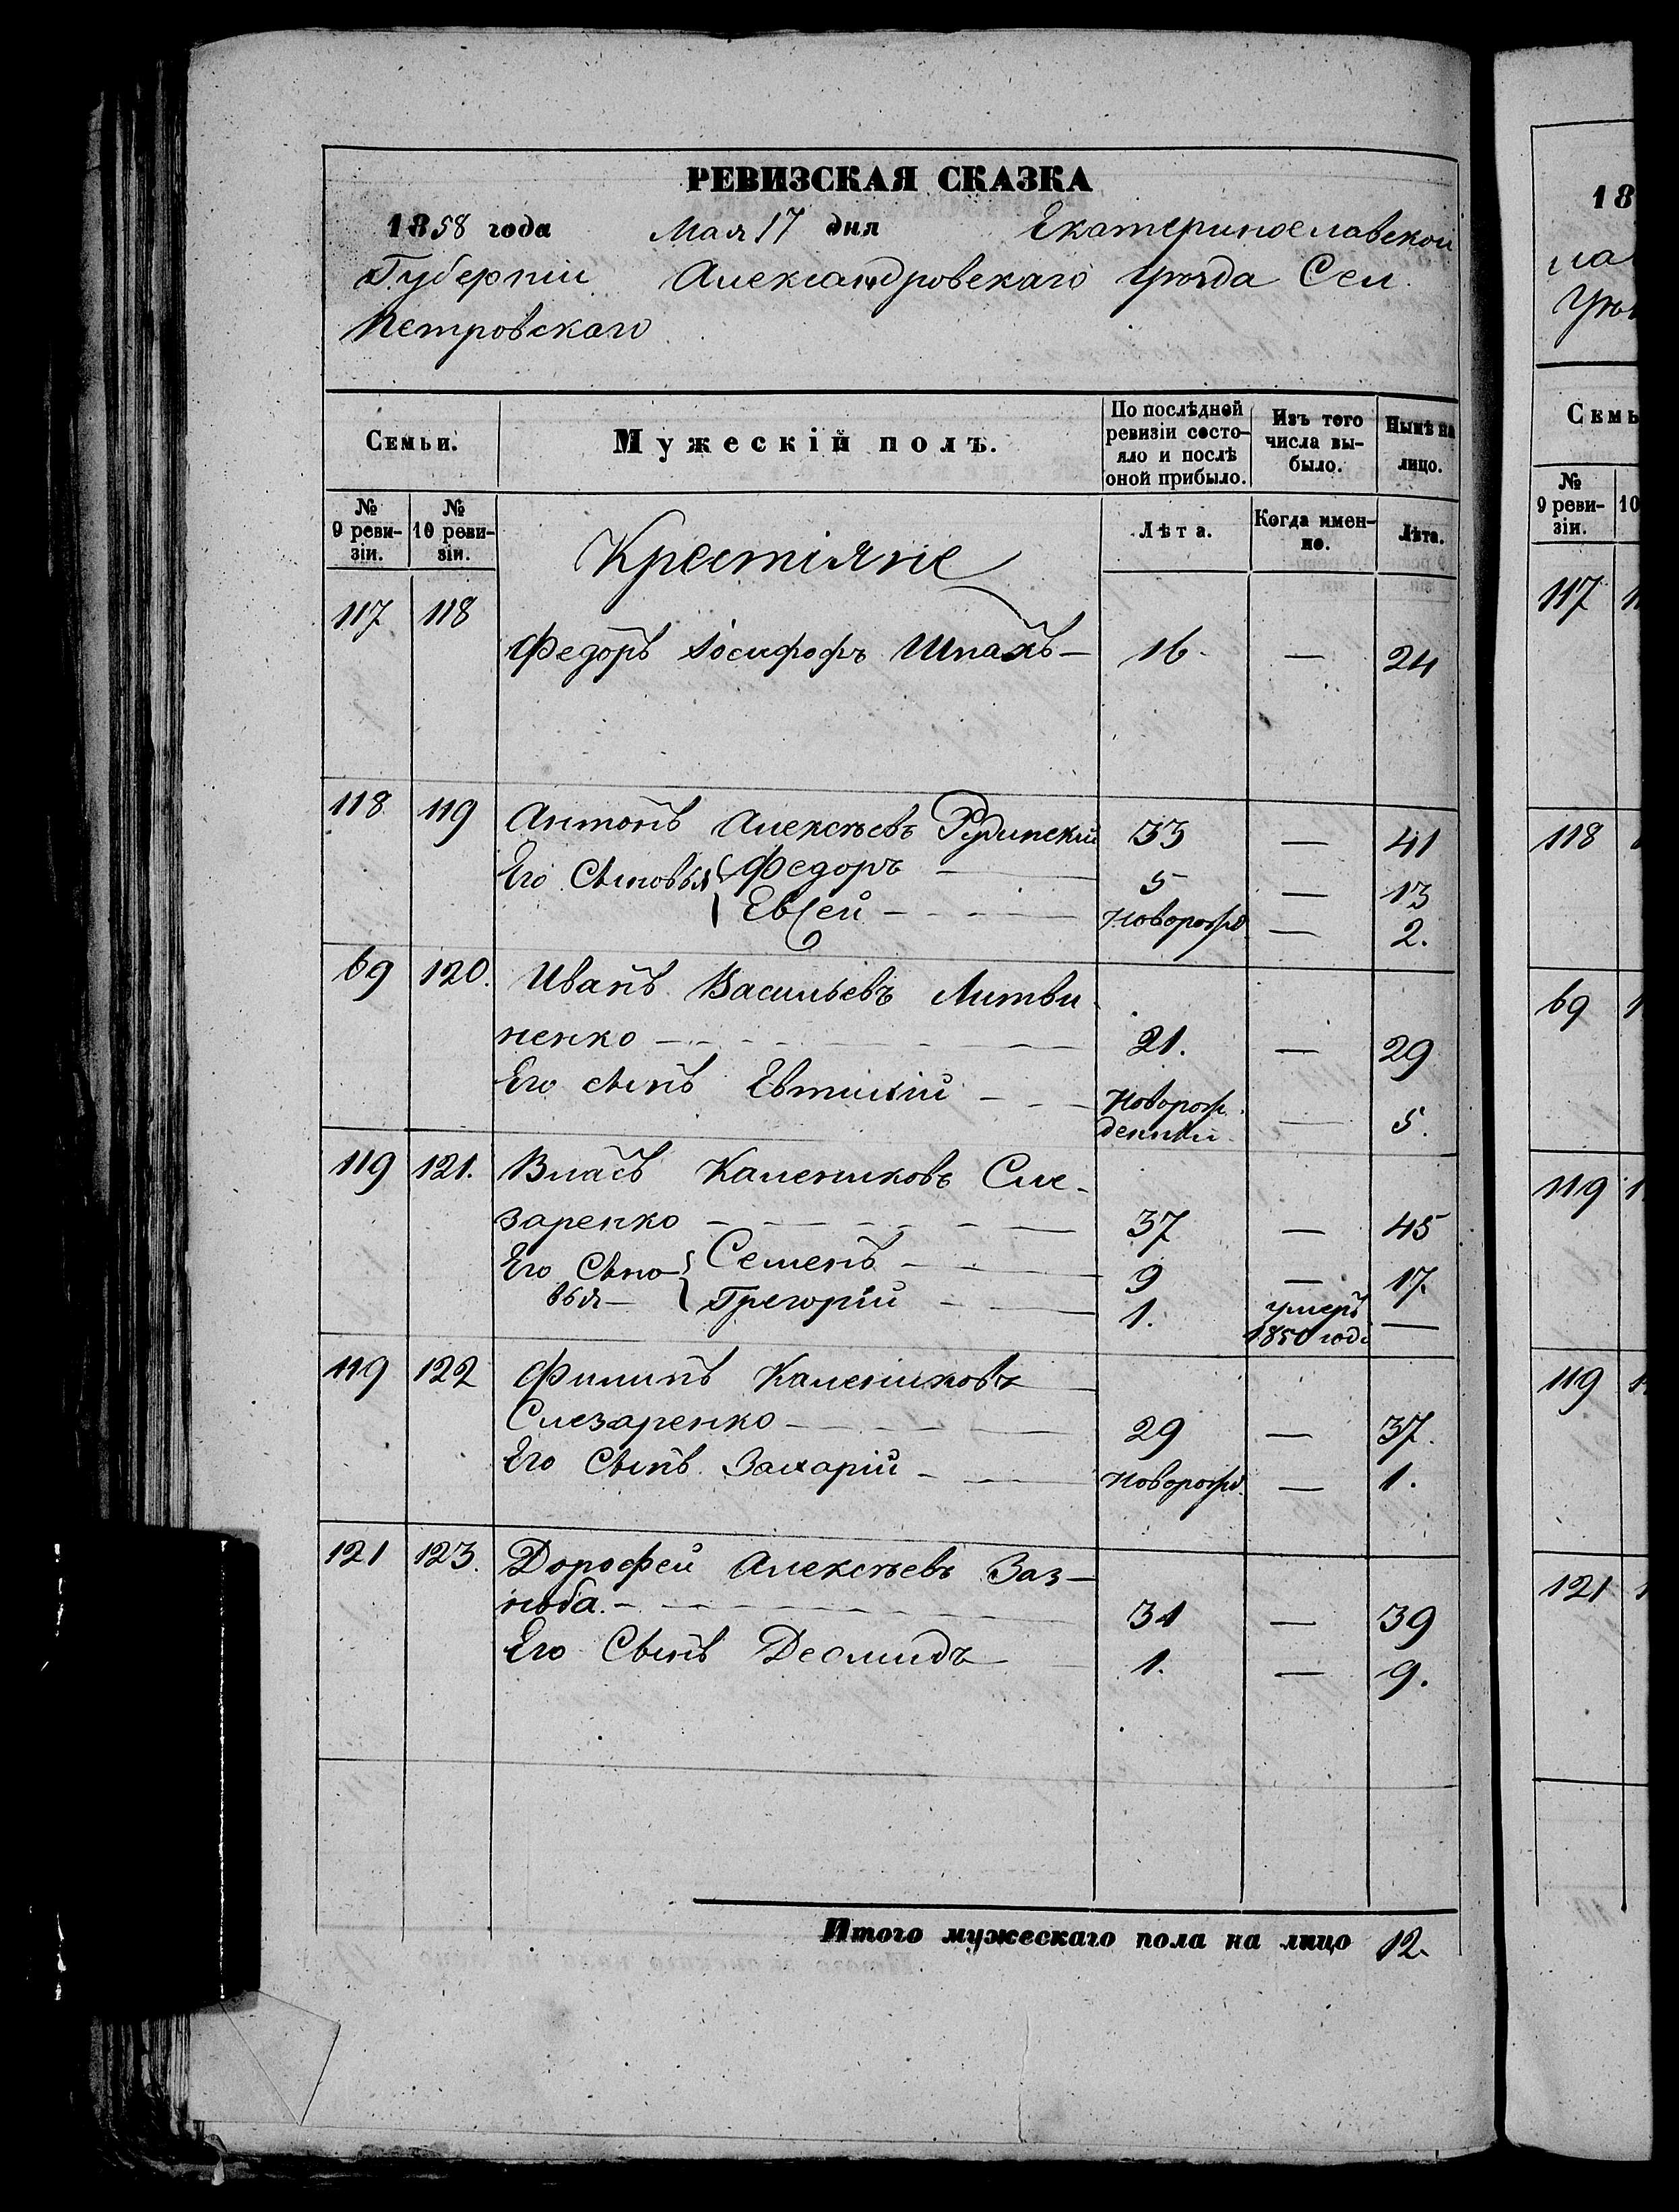 РЕВИЗСКАЯ СКАЗКА
1858 года Мая 17 дня Екатеринославской
Губерніи Александровскаго Уѣзда Сел.
Петровскаго
Семьи.
Мужескій полъ.
По послѣдней ревизіи состояло и послѣ оной прибыло.
Изъ того числа выбыло.
Нынѣ на лицо.
№ 9 ревизіи.
№ 10 ревизіи.
Крестіяне
Лѣта.
Когда именно.
Лѣта.
117 118
Федоръ Іосифофъ Шпакъ — 16 — 24
118 119 Антонъ Алексѣевъ Рудинскій 33 — 41
Его Сыновья Федоръ — 5 — 13
Евсей — Новорожд — 2.
69 120. Иванъ Васильевъ Литви
ненко — 21. — 29
Его сынъ Евтихій — Новорож
денный — 5.
119 121. Власъ Калениковъ Сле-
заренко — 37 — 45
Его Сыно- Семенъ — 9 — 17.
вья — Григорій — 1. умеръ
1850 год —
119 122 Филипъ Калениковъ
Слезаренко — 29 — 37.
Его Сынъ Захарій — Новорожд. — 1.
121 123. Дорофей Алексѣевъ Заз-
ноба. — 31 — 39
Его Сынъ Деомидъ 1. — 9.
Итого мужескаго пола на лицо 12.
18
Семь
№ 9 ревизіи.
10
117
118
69
119
119
121